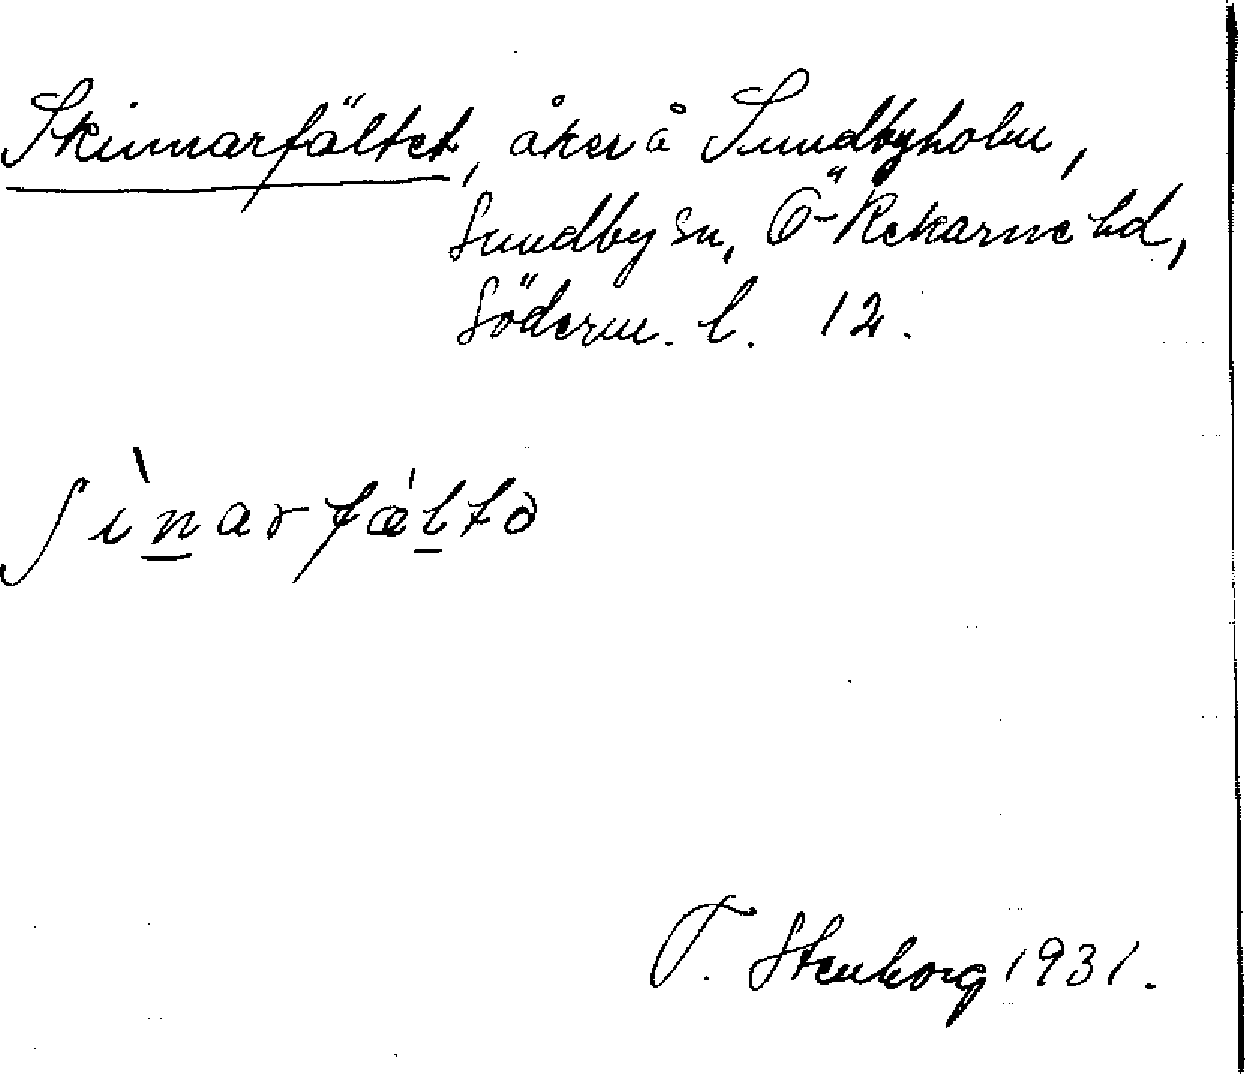 Skinnarfältet, åker å Sundbyholm,
Sundby sn, Ö-Rekarne hd,
Söderm. l. 12.
ʃìn̲arfæ̍l̲tə
T. Stenborg 1931.